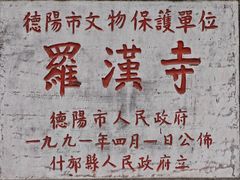 德陽市文物保護單位
羅漢寺
德陽市人民政府
一九九一年四月一日公佈
什邡縣人民政府立